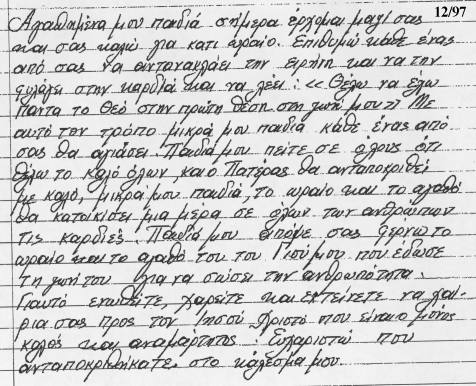 12/97
Αγαπημένα μου παιδιά σήμερα έρχομαι μαζί σας
και σας καλώ για κατι ωραίο. Επιθυμώ κάθε ένας
από σας να αντανακλάει την ειρήνη και να την
φυλάγει στην καρδιά και να λέει: «Θέλω να έχω
πάντα το Θεό στην πρώτη θέση στη ζωή μου» Με
αυτό τον τρόπο μικρά μου παιδιά κάθε ένας από
σας θα αγιάσει. Παιδιά μου πείτε σε όλους ότι
θέλω το καλό όλων, και ο Πατέρας θα ανταποκριθεί
με καλό, μικρά μου παιδιά, το ωραίο και το αγαθό
θα κατοικίσει μια μέρα σε όλων των ανθρώπων
τις καρδιές. Παιδιά μου σας φέρνω το
ωραίο και το αγαθό του του Γιού μου που έδωσε
τη ζωή του για να σώσει την ανθρωπότητα.
Γιαυτό χαρείτε και εκτείνετε να χέ
ρια σας προς τον Ιησού Χριστό που είναι ο μόνος
καλός και αναμάρτητος. Ευχαριστώ που
ανταποκριθήκατε στο κάλεσμα μου.